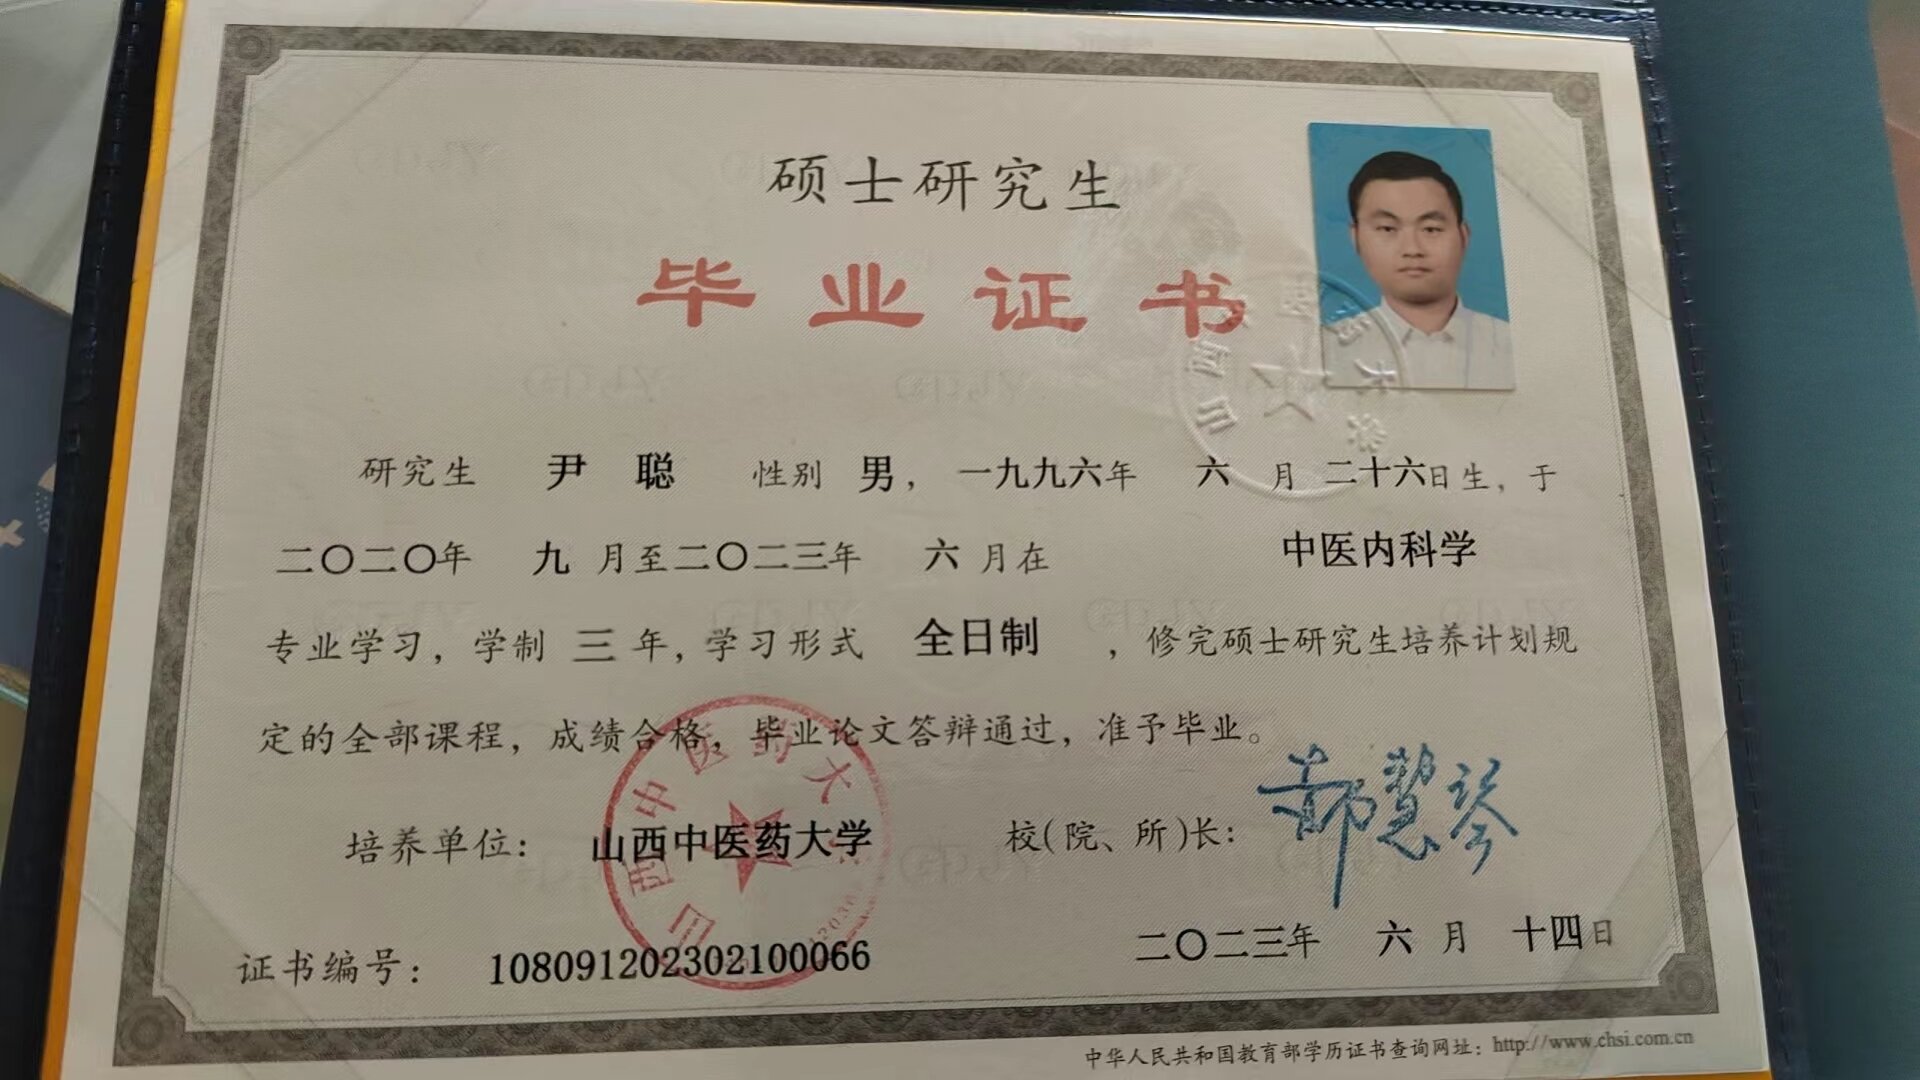 硕士研究生
毕业证书
研究生 尹 聪 性别 男，一九九六年 六 月 二十六日生，于
二〇二〇年 九 月至二〇二三年 六 月在 中医内科学
专业学习，学制 三 年，学习形式 全日制 ，修完硕士研究生培养计划规
定的全部课程，成绩合格，毕业论文答辩通过，准予毕业。
培养单位： 山西中医药大学 校(院、所)长：
山西中医药大学
证书编号： 108091202302100066 二〇二三年 六 月 十四日
中华人民共和国教育部学历证书查询网址：http://www.chsi.com.cn